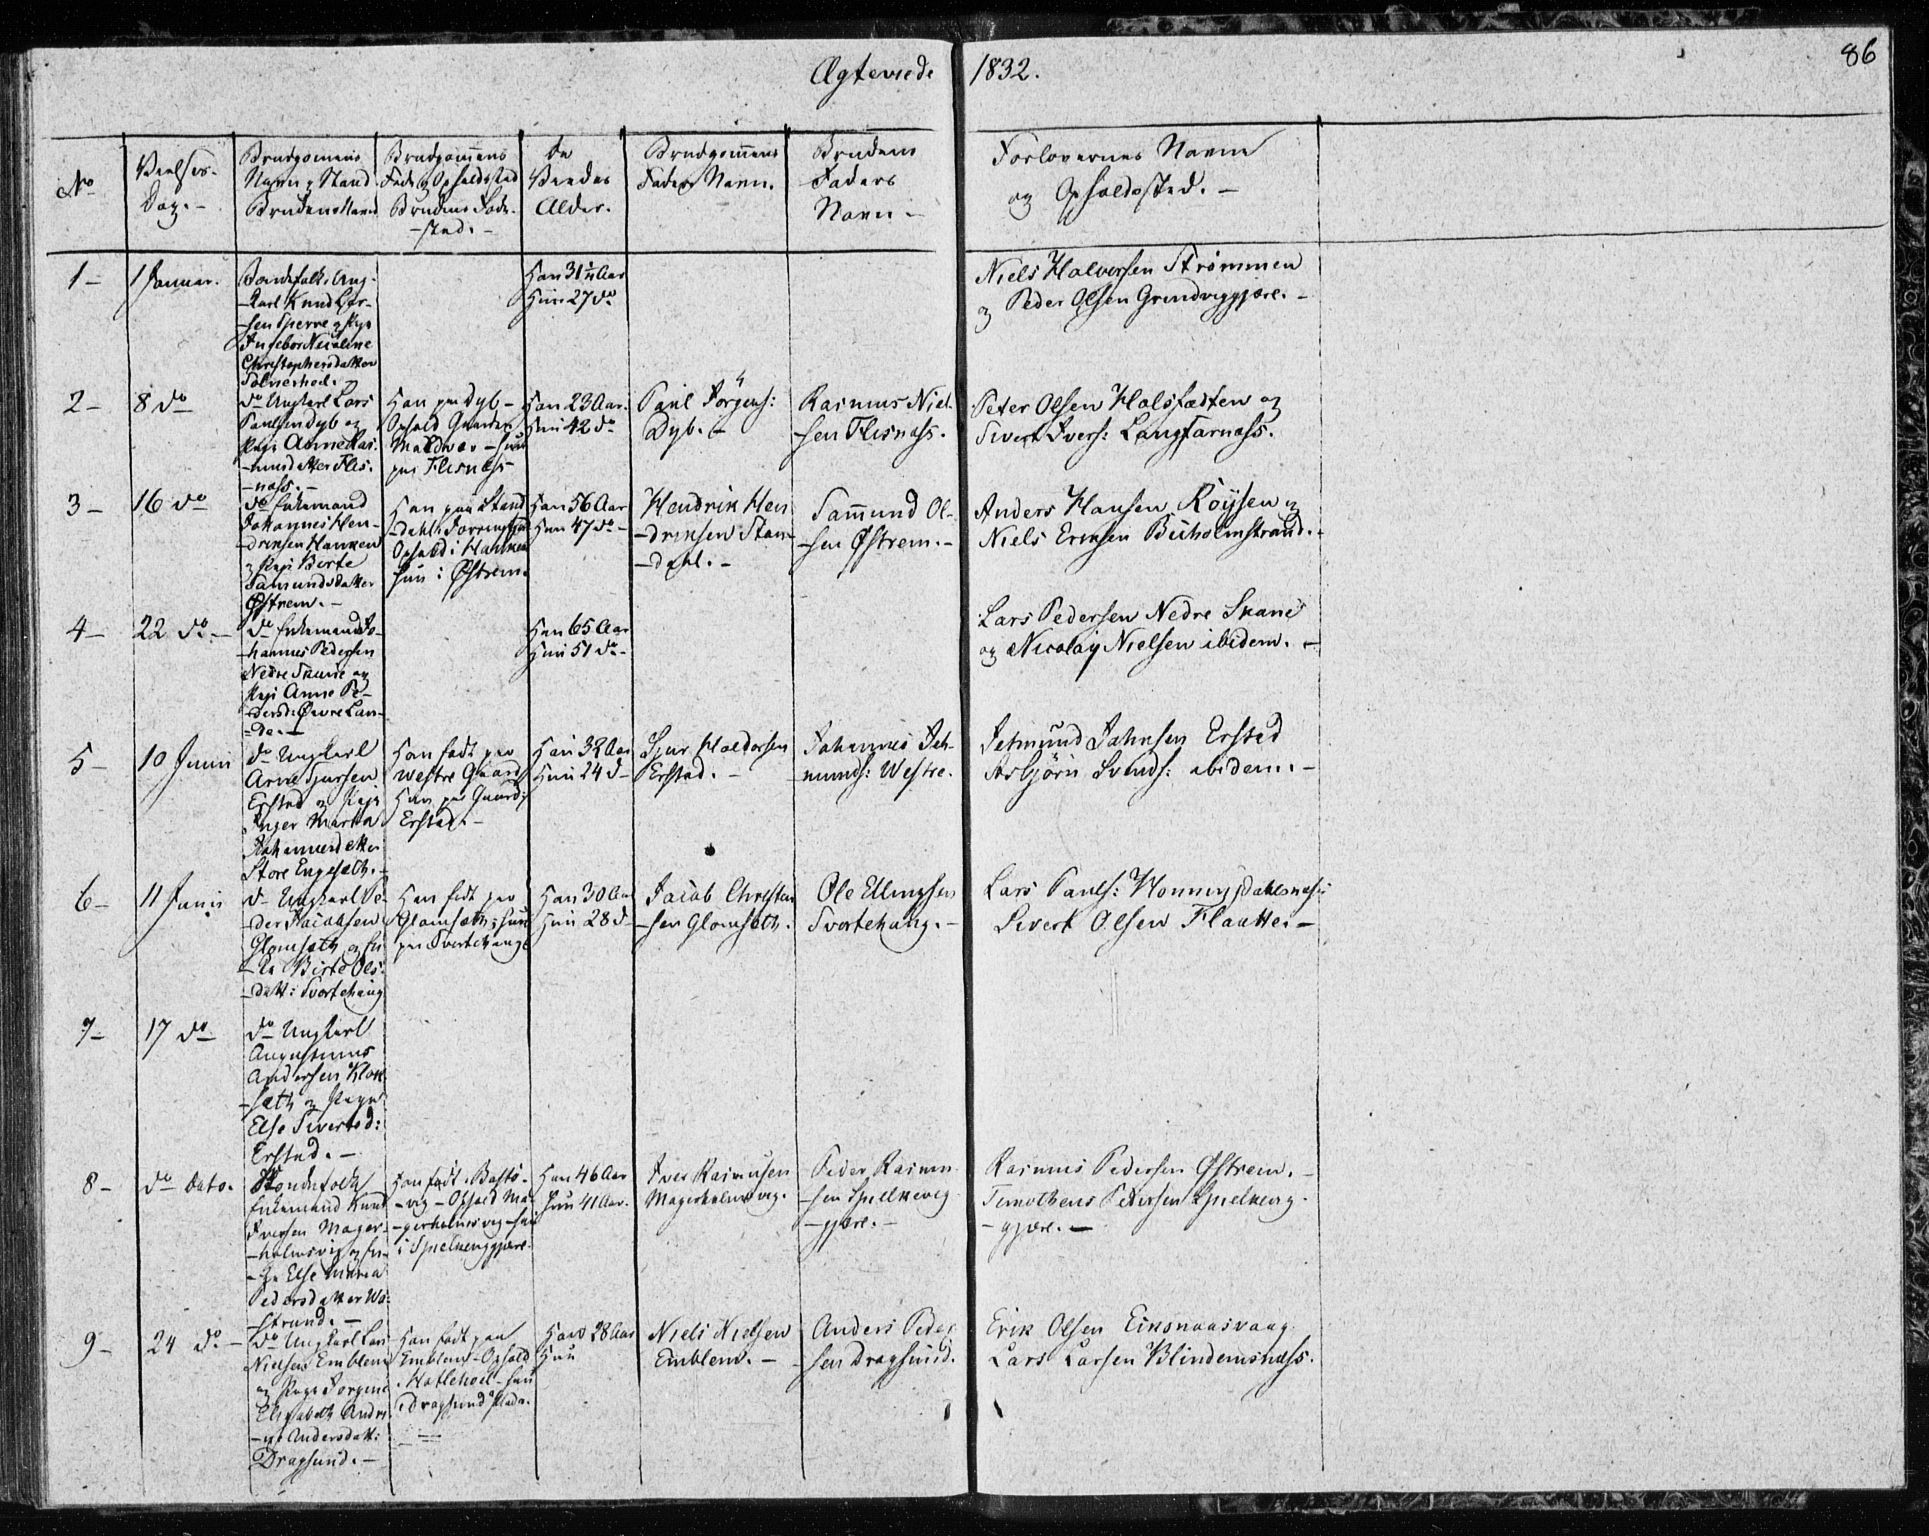 Ægteviede 1832.
86
No
Vielses-
Dag. -
Brudgomens
Navn og Stand
Brudens Navn
Brudgomens
Føde og Opholdssted
Brudens Føde-
-sted. -
De
Viedes
Alder.
Brudgomens
Faders Navn.
Brudens
Faders
Navn -
Forlovernes Navne
og Opholdssted. -
1 -
1 Januar.
Bondefolk, Ung-
-karl Knud Lar-
-sen Sperre og Pige
Ingebor Nicoline
Christophersdatter
Han 31 Aar
Hun 27 do
Niels Halvorsen Strømmen
og Peder Olsen Grindviggjære. -
2 -
8 do
do Ungkarl Lars
Paulsen Dyb og
Pige Anne Ras-
-musdatter Flis-
-næss. -
Han paa Dyb -
Ophold Gaarden
- Hun
paa Flisnæss
Han 23 Aar.
Hun 42 do
Paul Jörgens:
Dyb. -
Rasmus Niel-
-sen Flisnæss.
Peter Olsen Holsfædten og
Sivert Ivers: Langtarnæss.
3 -
16 do
do Enkemand
Johannes Hen-
-driksen Hanken
og Pige Berte
Samundsdatter
Østrem. -
Han paa Stand
-dahl
Ophold i Hanken
Hun i Østrem.
Han 56 Aar
Hun 47 do -
Hendrik Hen
-driksen Stan-
-dahl. -
Samund Ol-
-sen Østrem. -
Anders Hansen Röysen og
Niels Eriksen Buholmstrand. -
4 -
22 do. -
do Enkemand Jo-
-hannes Pedersen
Nedre Skane og
Pige Anne Pe-
-dersd: Øvre Lan-
-de. -
Han 65 Aar
Hun 51 do -
Lars Pedersen Nedre Skane
og Nicolay Nielsen ibidem. -
5 -
10 Junii
do Ungkarl
Arne Sjursen
Erstad og Pige
Inger Marta
Johannesdatter
Store Engesæth. -
Han født paa
Westre Gaard
Hun paa Gaard
Erstad. -
Han 32 Aar
Hun 24 d -
Sjur Haldorsen
Erstad. -
Johannes Jet-
munds: Westre.
Jetmund Johnsen Erstad
Asbjørn Svends: ibidem. -
6 -
11 Junii
do Ungkarl Pe-
-der Jacobsen
Glomsæth og En-
-ke Birte Ols-
-datt: Svortehaug
Han født paa
Glomsæth; Hun
paa Svortehaug
Han 30 Aar
Hun 28 d -
Jacob Christen
-sen Glomsæth.
Ole Ellingsen
Svortehaug. -
Lars Pauls: Honningsdahlsnæs:
Sivert Olsen Flaatte. -
7 -
17 do
do Ungkarl
Augustinus
Andersen Klok-
-sæth og Pige
Else Sivertsd:
Erstad. -
8 -
do Dato.
Bondefolk
Enkemand Knud
Iversen Mager-
-holmsvig og En-
-ke Else Maria
Pedersdatter Wa-
-strand. -
Han født i Bastö-
-vig - Ophold Ma-
-gerholmsvig - Hun
i Spielkeviggjære.
Han 46 Aar
Hun 41 Aar.
Iver Rasmusen
Magerholmsvig.
Peder Rasmu-
-sen Spielkevig
-gjære. -
Rasmus Pedersen Østrem. -
Timotheus Petersen Spielkevig-
-gjære. -
9 -
24 do. -
do Ungkarl Lars
Nielsen Emblem
og Pige Jorgine
Elisabeth Andri-
-ne Andersdatt:
Dragsund. -
Han født paa
Emblem - Ophold
i Hatlehoel - Hun
i Dragsund Plads.
Han 28 Aar
Hun
Niels Nielsen
Emblem. -
Anders Peder-
-sen Dragsund.
Erik Olsen Eiksnaasvaag.
Lars Larsen Blindemsnæss.